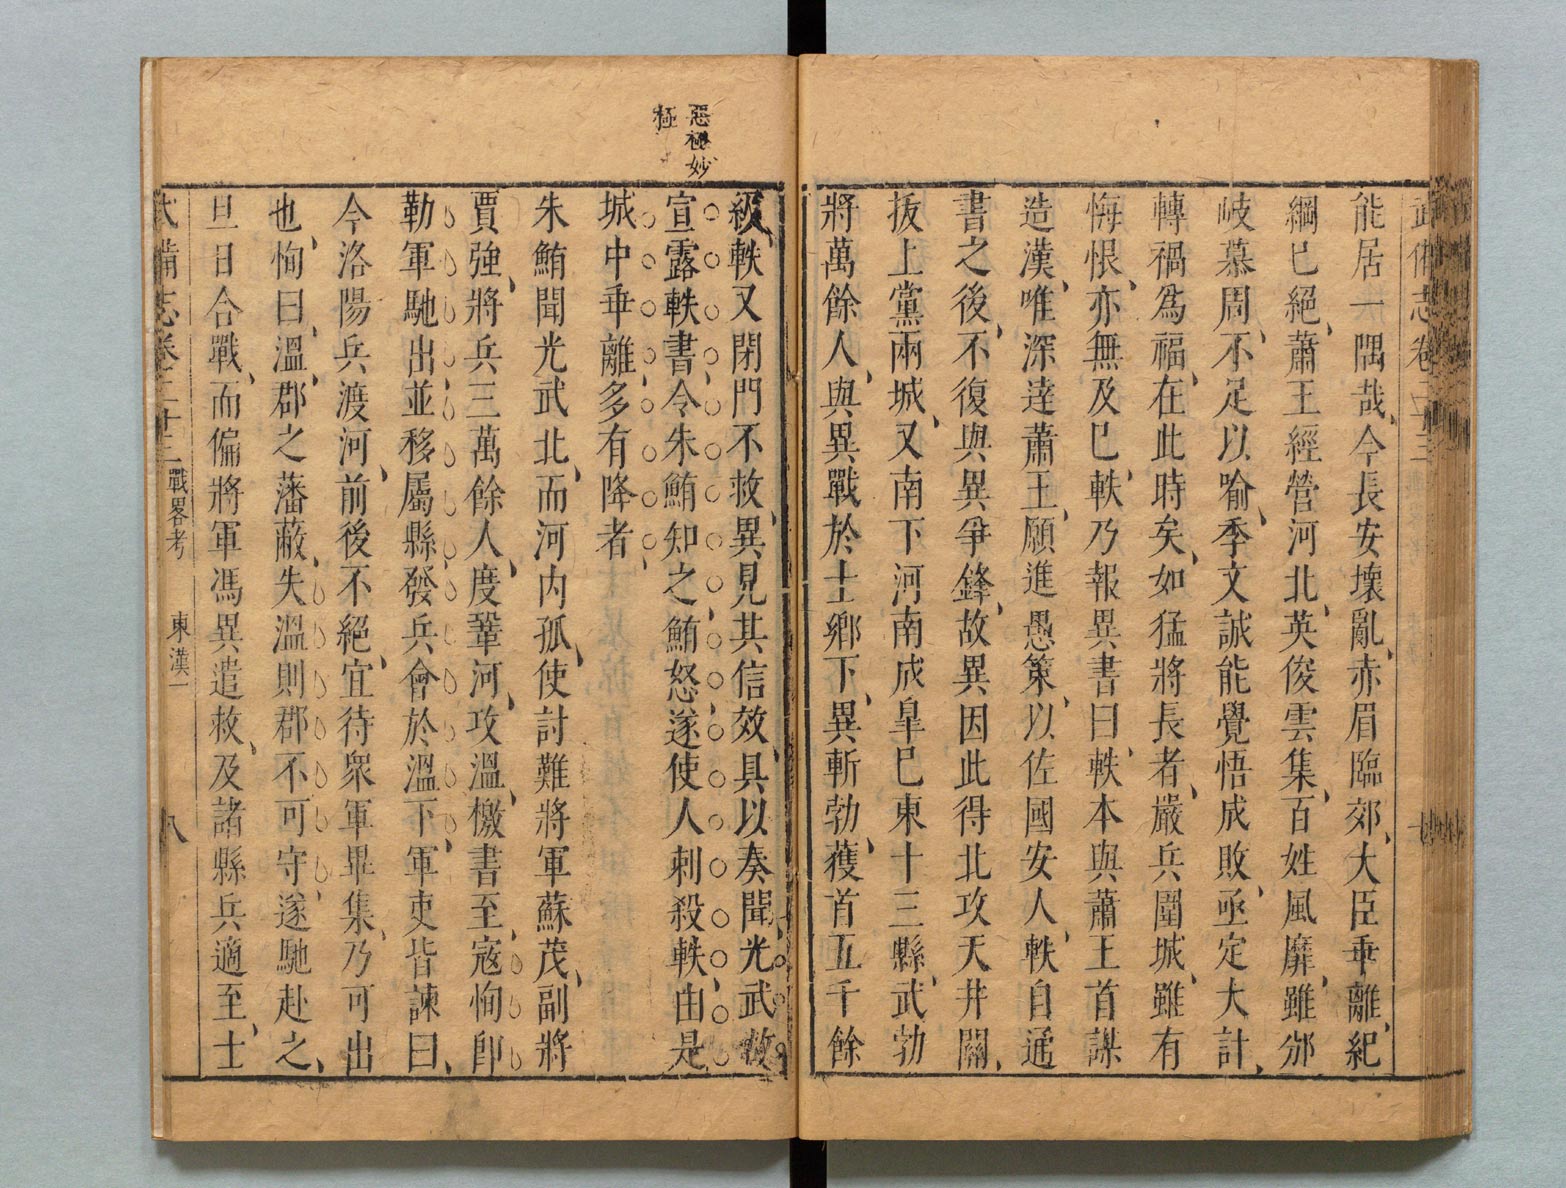 武備志卷二十三
能居一隅哉、今長安壞亂、赤眉臨郊、大臣乖離、紀
綱已絕、蕭王經營河北、英俊雲集、百姓風靡、雖邠
岐慕周、不足以喻、季文誠能覺悟成敗、亟定大計、
轉禍爲福、在此時矣、如猛將長者、嚴兵圍城、雖有
悔恨、亦無及已、軼乃報異書曰、軼本與蕭王首謀
造漢、唯深達蕭王、願進愚策、以佐國安人、軼自通
書之後、不復與異爭鋒、故異因此得北攻天井關、
拔上黨兩城、又南下河南成臯巳東十三縣、武勃
將萬餘人、與異戰於士鄉下、異斬勃、獲首五千餘
惡極妙
極
級、軼又閉門不救、異見其信效、具以奏聞、光武故
宣露軼書、令朱鮪知之、鮪怒、遂使人刺殺軼、由是
城中乖離、多有降者、
朱鮪聞光武北、而河內孤、使討難將軍蘇茂、副將
賈強、將兵三萬餘人、度鞏河、攻溫、檄書至、寇恂卽
勒軍馳出、並移屬縣、發兵會於溫下、軍吏皆諫曰、
今洛陽兵渡河、前後不絕、宜待衆軍畢集、乃可出
也、恂曰、溫、郡之藩蔽、失溫則郡不可守、遂馳赴之、
旦日合戰、而偏將軍馮異遣救、及諸縣兵適至、士
武備志卷二十三 戰畧考 東漢一 八